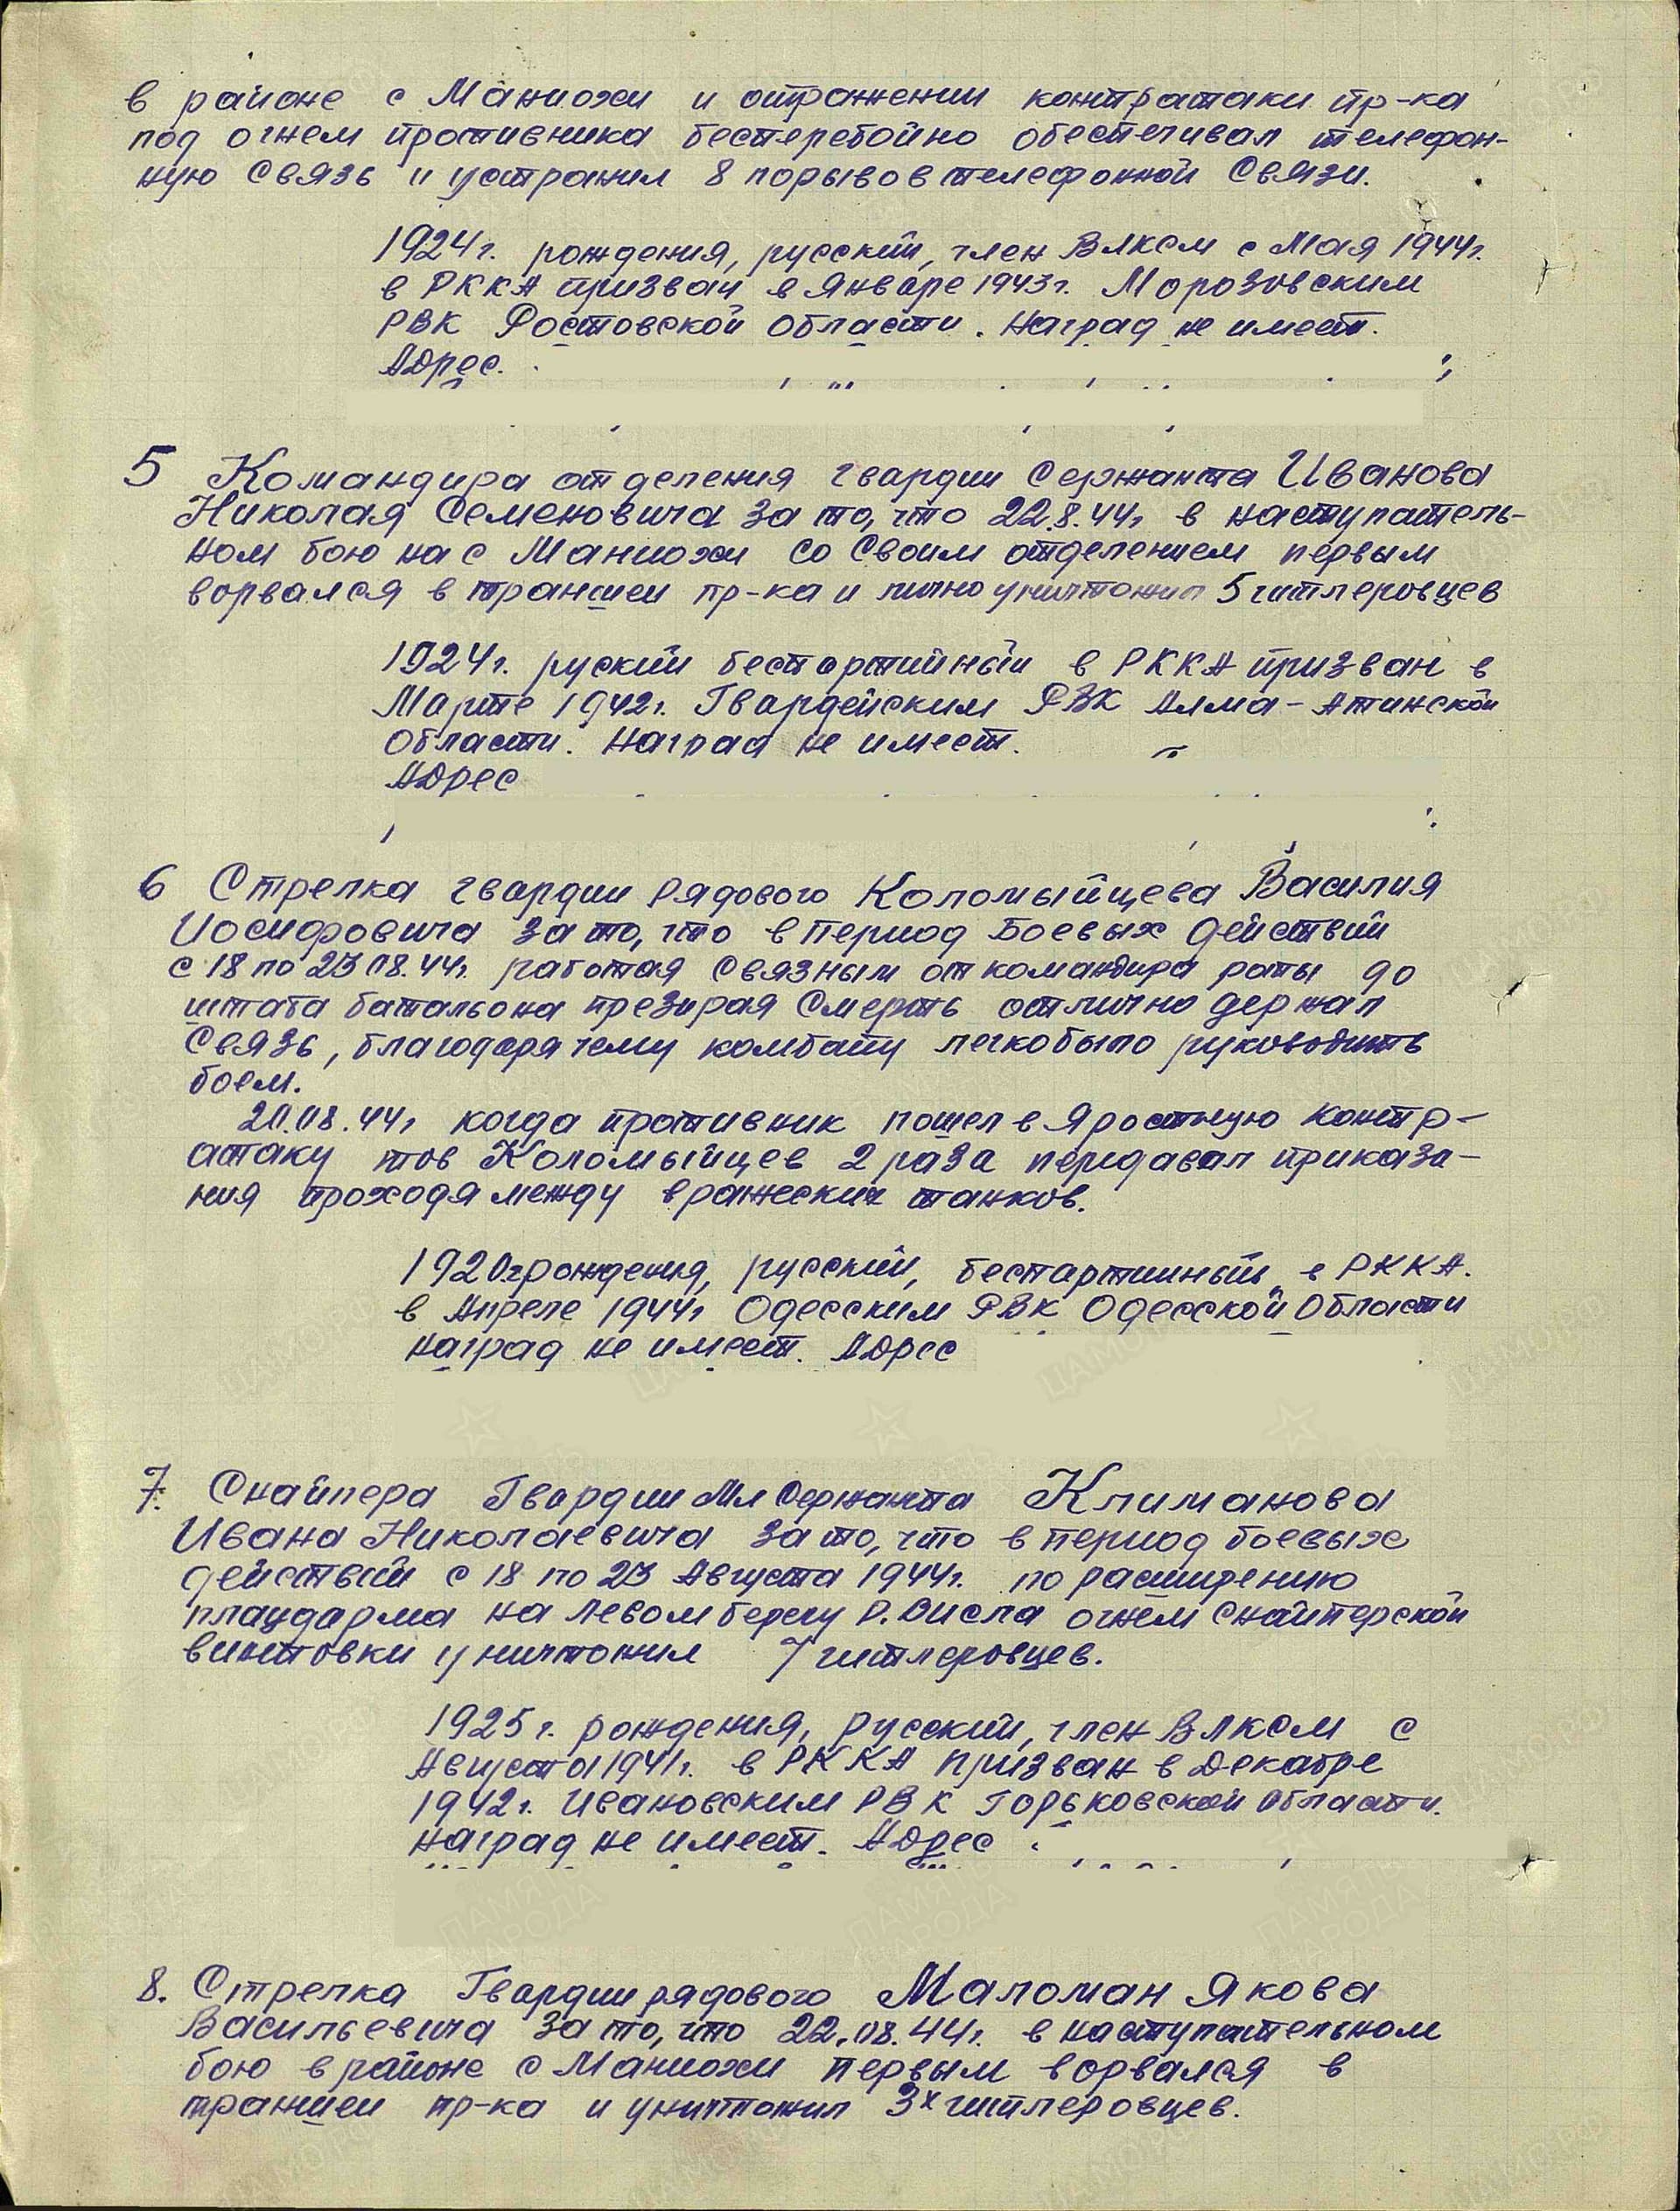 в районе с Маниохи и отражении контратаки пр-ка
под огнем противника бесперебойно обеспечивал телефон-
ную связь и устранил 8 порывов телефонной связи.
1924 г. рождения, русский, член ВЛКСМ с Мая 1944г.
в РККА призван в январе 1943г. Морозовским
РВК Ростовской области. Наград не имеет.
Адрес.
5 Командира отделения гвардии Сержанта Иванова
Николая Семеновича за то, что 22.8.44г в наступатель-
ном бою на с Маниохи со своим отделением первым
ворвался в траншеи пр-ка и лично уничтожил 5 гитлеровцев
1924г. руский беспартийный в РККА призван в
Марте 1942г. Гвардейским РВК Алма-Атинской
области. Наград не имеет.
Адрес
6 Стрелка гвардии Рядового Коломыйцева Василия
Иосифовича за то, что в период Боевых действий
с 18 по 23 08.44г. работая связным от командира роты до
штаба батальона презирая смерть отлично держал
связь, благодаря чему комбату легко было руководить
боем.
20.08.44г когда противник пошел в яростную контр-
атаку тов Коломыйцев 2 раза передавал приказа-
ния проходя между вражеских танков.
1920г рождения, русский, беспартийный, в РККА.
в Апреле 1944г Одесским РВК Одесской Области
наград не имеет. Адрес
7. Снайпера Гвардии Мл Сержанта Климанова
Ивана Николаевича за то, что в период боевых
действий с 18 по 23 Августа 1944г. по расширению
плацдарма на левом берегу р. Висла огнём снайперской
винтовки уничтожил 7 гитлеровцев.
1925г. рождения, русский, член ВЛКСМ с
Августа 1941г. в РККА призван в Декабре
1942г. Ивановским РВК Горьковской области.
наград не имеет. Адрес
8. Стрелка Гвардии рядового Маломан Якова
Васильевича за то, что 22.08.44г. в наступательном
бою в районе с Маниохи первым ворвался в
траншеи пр-ка и уничтожил 3х гитлеровцев.